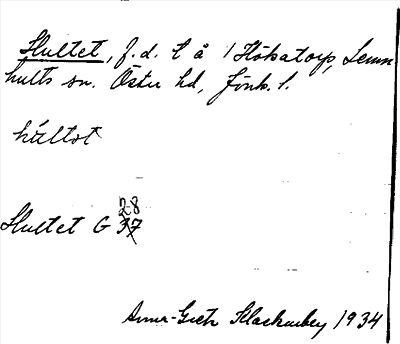 Hultet, f.d. t å 1 Hökatorp, Lemn
hults sn. Östra hd, Jönk. l.
hùltət
28
Hultet G 37
Anna-Greta Klackenberg 1934